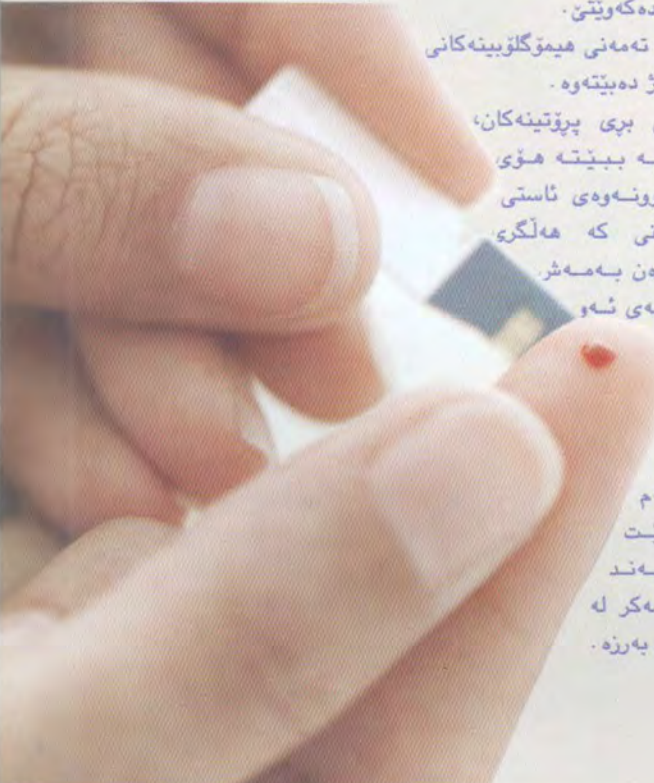 دەکەوێتێ.
تەمەنی هیمۆگلۆبینەکانی
ژ دەبێتەوە.
بڕی پرۆتینەکان،
ـە ببێتـە هـۆی
رونــەوەی ئاستی
تی کە هەڵگری
ەن بــەمــەش
ەی ئــەو
م
ێــت
ــەنـد
ەکر لە
بەرزە.